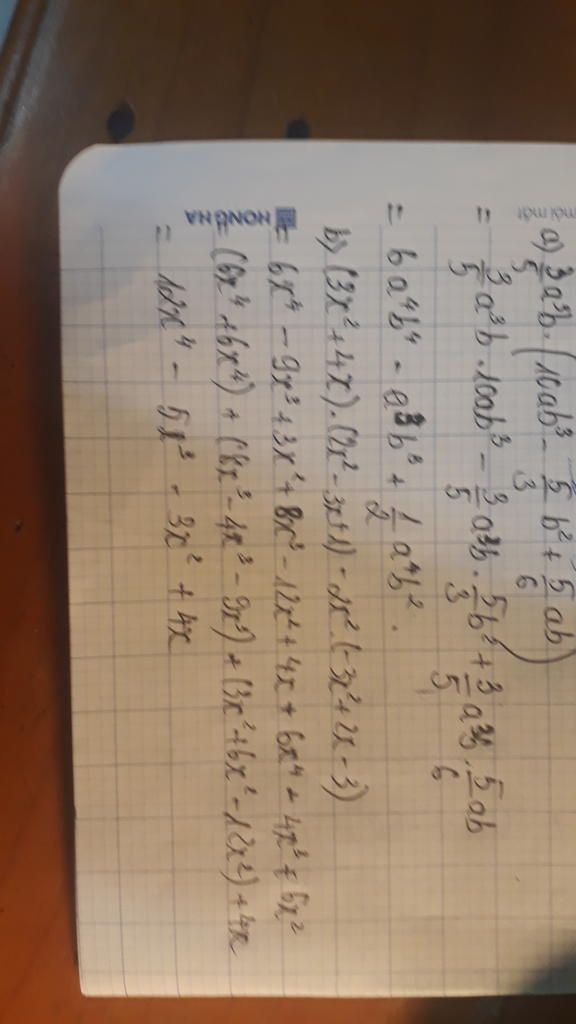 mỗi một
a) 3/5 a³b . (10ab³ - 5/3 b² + 5/6 ab)
= 3/5 a³b . 10ab³ - 3/5 a³b . 5/3 b² + 3/5 a³b . 5/6 ab
= 6a⁴b⁴ - a³b³ + 1/2 a⁴b² .
b) (3x² + 4x) . (2x² - 3x + 1) - 2x² . (-3x² + 2x - 3)
= 6x⁴ - 9x³ + 3x² + 8x³ - 12x² + 4x + 6x⁴ - 4x³ + 6x²
HONG HA
= (6x⁴ + 6x⁴) + (8x³ - 4x³ - 9x³) + (3x² + 6x² - 12x²) + 4x
= 12x⁴ - 5x³ - 3x² + 4x